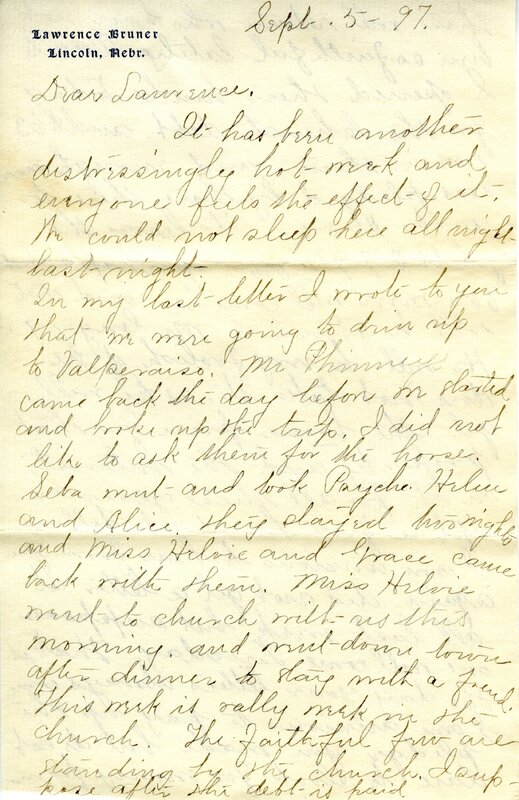 Lawrence Bruner
Lincoln, Nebr.
Sept. 5-97.
Dear Lawrence.
It has been another
distressingly hot week and
everyone feels the effect of it.
We could not sleep here all night
last night.
In my last letter I wrote to you
that we were going to drive up
to Valperaiso. Mr Phinneys
came back the day before we started
and broke up the trip. I did not
like to ask them for the horse.
Seba went and took Psyche Helen
and Alice. they stayed two nights
and Miss Helvie and Grace came
back with them. Miss Helvie
went to church with us this
morning. and went down town
after dinner to stay with a friend.
This week is rally week in the
church. The Faithful few are
standing by the church. I sup-
pose after the debt is paid